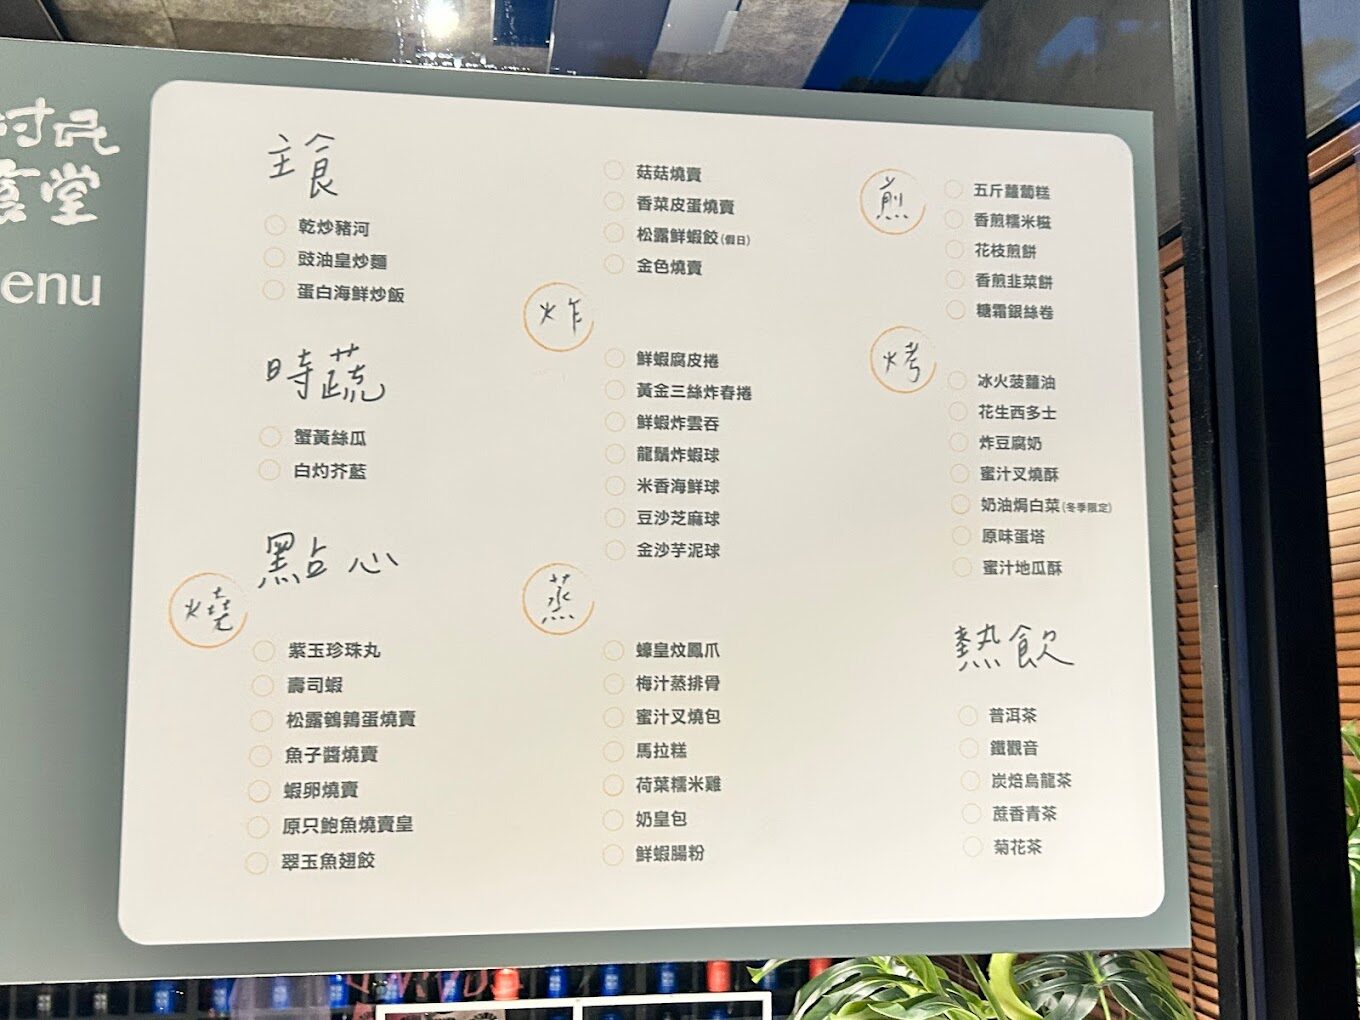 村民
食堂
enu
主食
乾炒豬河
豉油皇炒麵
蛋白海鮮炒飯
時蔬
蟹黃絲瓜
白灼芥藍
點心
燒
紫玉珍珠丸
壽司蝦
松露鵪鶉蛋燒賣
魚子醬燒賣
蝦卵燒賣
原只鮑魚燒賣皇
翠玉魚翅餃
菇菇燒賣
香菜皮蛋燒賣
松露鮮蝦餃(假日)
金色燒賣
炸
鮮蝦腐皮捲
黃金三絲炸春捲
鮮蝦炸雲吞
龍鬚炸蝦球
米香海鮮球
豆沙芝麻球
金沙芋泥球
蒸
蠔皇炆鳳爪
梅汁蒸排骨
蜜汁叉燒包
馬拉糕
荷葉糯米雞
奶皇包
鮮蝦腸粉
煎
五斤蘿蔔糕
香煎糯米糍
花枝煎餅
香煎韭菜餅
糖霜銀絲卷
烤
冰火菠蘿油
花生西多士
炸豆腐奶
蜜汁叉燒酥
奶油焗白菜(冬季限定)
原味蛋塔
蜜汁地瓜酥
熱飲
普洱茶
鐵觀音
炭焙烏龍茶
蔗香青茶
菊花茶